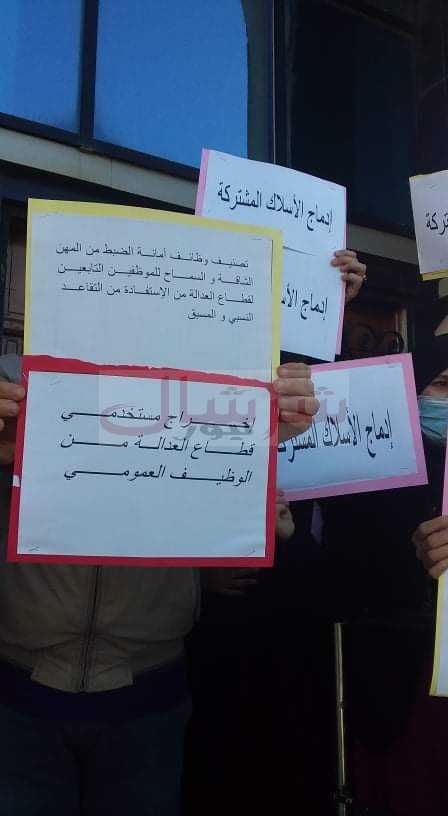 إدماج الأسلاك المشتركة
تصنيف وظائف أمانة الضبط من المهن
الشاقة و السماح للموظفين التابعين
لقطاع العدالة من الإستفادة من التقاعد
النسبي و المسبق
إدماج
إخراج مستخدمي
قطاع العدالة مـن
الوظيف العمومي
إدماج الأسلاك المشتركة
شرشال
نيوز